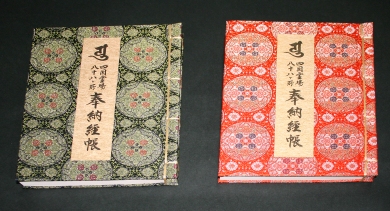 四国霊場
八十八ヶ所
奉納経帳
四国霊場
八十八ヶ所
奉納経帳